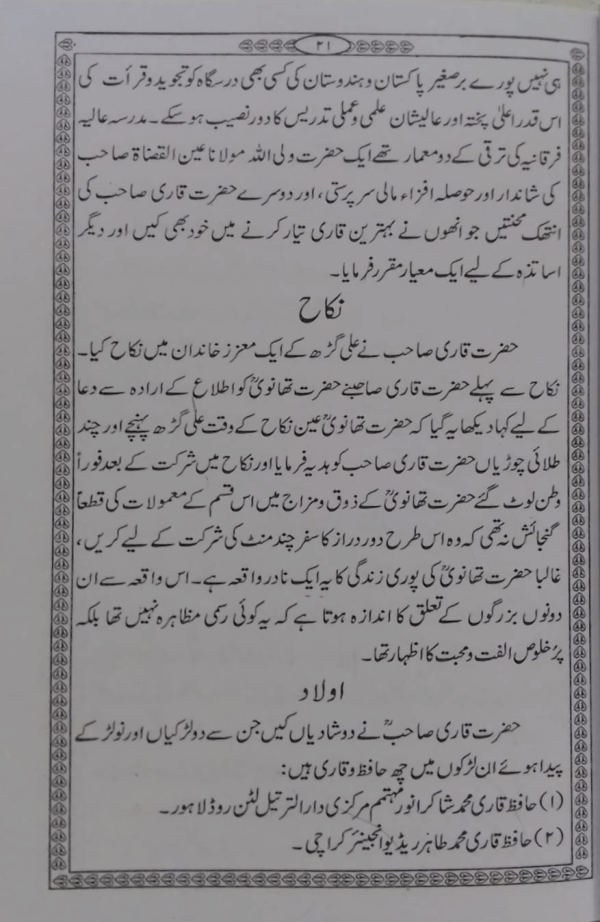 ۲۱
ہی نہیں پورے برصغیر پاکستان و ہندوستان کی کسی بھی درسگاہ کو تجوید و قرأت کی
اس قدر اعلیٰ پختہ اور عالیشان علمی و عملی تدریس کا دور نصیب ہو سکے۔ مدرسہ عالیہ
فرقانیہ کی ترقی کے دو معمار تھے ایک حضرت ولی اللہ مولانا عین القضاۃ صاحب
کی شاندار اور حوصلہ افزاء مالی سرپرستی، اور دوسرے حضرت قاری صاحب کی
انتھک محنتیں جو انھوں نے بہترین قاری تیار کرنے میں خود بھی کیں اور دیگر
اساتذہ کے لیے ایک معیار مقرر فرمایا۔
نکاح
حضرت قاری صاحب نے علی گڑھ کے ایک معزز خاندان میں نکاح کیا۔
نکاح سے پہلے حضرت قاری صاحبنے حضرت تھانویؒ کو اطلاع کے ارادہ سے دعا
کے لیے کہا دیکھا یہ گیا کہ حضرت تھانویؒ عین نکاح کے وقت علی گڑھ پہنچے اور چند
طلائی چوڑیاں حضرت قاری صاحب کو ہدیہ فرمایا اور نکاح میں شرکت کے بعد فوراً
وطن لوٹ گئے حضرت تھانویؒ کے ذوق و مزاج میں اس قسم کے معمولات کی قطعاً
گنجائش نہ تھی کہ وہ اس طرح دور دراز کا سفر چند منٹ کی شرکت کے لیے کریں،
غالبا حضرت تھانویؒ کی پوری زندگی کا یہ ایک نادر واقعہ ہے۔ اس واقعہ سے ان
دونوں بزرگوں کے تعلق کا اندازہ ہوتا ہے کہ یہ کوئی رسمی مظاہرہ نہیں تھا بلکہ
پُرخلوص الفت و محبت کا اظہار تھا۔
اولاد
حضرت قاری صاحبؒ نے دو شادیاں کیں جن سے دو لڑکیاں اور نو لڑکے
پیدا ہوئے ان لڑکوں میں چھ حافظ و قاری ہیں:
(۱) حافظ قاری محمد شاکر انور مہتمم مرکزی دارالترتیل لٹن روڈ لاہور۔
(۲) حافظ قاری محمد طاہر ریڈیو انجینئر کراچی۔